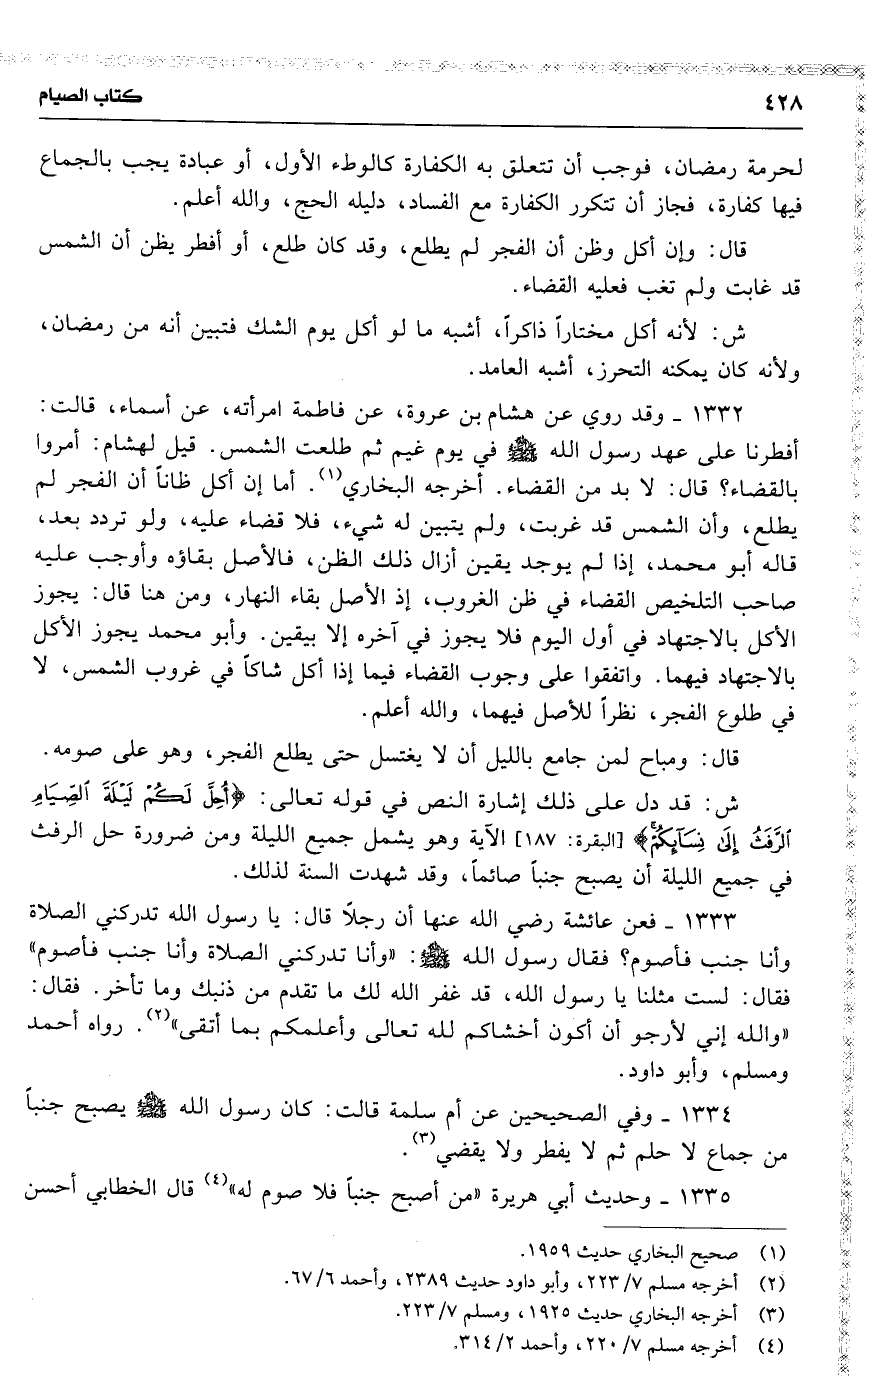 ٤٢٨ كتاب الصيام
لحرمة رمضان، فوجب أن تتعلق به الكفارة كالوطء الأول، أو عبادة يجب بالجماع
فيها كفارة، فجاز أن تتكرر الكفارة مع الفساد، دليله الحج، والله أعلم.
قال: وإن أكل وظن أن الفجر لم يطلع، وقد كان طلع، أو أفطر يظن أن الشمس
قد غابت ولم تغب فعليه القضاء.
ش: لأنه أكل مختاراً ذاكراً، أشبه ما لو أكل يوم الشك فتبين أنه من رمضان،
ولأنه كان يمكنه التحرز، أشبه العامد.
١٣٣٢ ـ وقد روي عن هشام بن عروة، عن فاطمة امرأته، عن أسماء، قالت:
أفطرنا على عهد رسول الله ﷺ في يوم غيم ثم طلعت الشمس. قيل لهشام: أمروا
بالقضاء؟ قال: لا بد من القضاء. أخرجه البخاري(١). أما إن أكل ظاناً أن الفجر لم
يطلع، وأن الشمس قد غربت، ولم يتبين له شيء، فلا قضاء عليه، ولو تردد بعد،
قاله أبو محمد، إذا لم يوجد يقين أزال ذلك الظن، فالأصل بقاؤه وأوجب عليه
صاحب التلخيص القضاء في ظن الغروب، إذ الأصل بقاء النهار، ومن هنا قال: يجوز
الأكل بالاجتهاد في أول اليوم فلا يجوز في آخره إلا بيقين. وأبو محمد يجوز الأكل
بالاجتهاد فيهما. واتفقوا على وجوب القضاء فيما إذا أكل شاكاً في غروب الشمس، لا
في طلوع الفجر، نظراً للأصل فيهما، والله أعلم.
قال: ومباح لمن جامع بالليل أن لا يغتسل حتى يطلع الفجر، وهو على صومه.
ش: قد دل على ذلك إشارة النص في قوله تعالى: ﴿أُحِلَّ لَكُمْ لَيْلَةَ ٱلصِّيَامِ
ٱلرَّفَثُ إِلَىٰ نِسَآئِكُمْ﴾ [البقرة: ١٨٧] الآية وهو يشمل جميع الليلة ومن ضرورة حل الرفث
في جميع الليلة أن يصبح جنباً صائماً، وقد شهدت السنة لذلك.
١٣٣٣ ـ فعن عائشة رضي الله عنها أن رجلاً قال: يا رسول الله تدركني الصلاة
وأنا جنب فأصوم؟ فقال رسول الله ﷺ: «وأنا تدركني الصلاة وأنا جنب فأصوم»
فقال: لست مثلنا يا رسول الله، قد غفر الله لك ما تقدم من ذنبك وما تأخر. فقال:
«والله إني لأرجو أن أكون أخشاكم لله تعالى وأعلمكم بما أتقى»(٢). رواه أحمد
ومسلم، وأبو داود.
١٣٣٤ ـ وفي الصحيحين عن أم سلمة قالت: كان رسول الله ﷺ يصبح جنباً
من جماع لا حلم ثم لا يفطر ولا يقضي(٣).
١٣٣٥ ـ وحديث أبي هريرة «من أصبح جنباً فلا صوم له»(٤) قال الخطابي أحسن
(١) صحيح البخاري حديث ١٩٥٩.
(٢) أخرجه مسلم ٧/ ٢٢٣، وأبو داود حديث ٢٣٨٩، وأحمد ٦/ ٦٧.
(٣) أخرجه البخاري حديث ١٩٢٥، ومسلم ٧/ ٢٢٣.
(٤) أخرجه مسلم ٧/ ٢٢٠، وأحمد ٢/ ٣١٤.